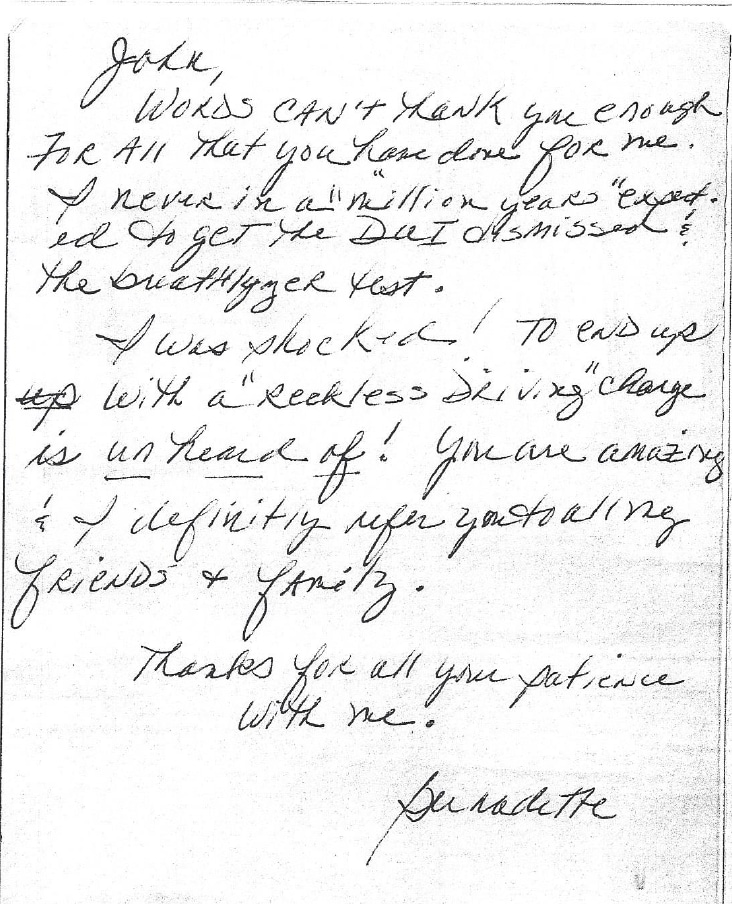 John,
Words can't thank you enough
For All that you have done for me.
I never in a "million years" expect-
ed to get the DUI dismissed &
the breathlyzer test.
I was shocked! To end up
up with a "Reckless Driving" charge
is un heard of! You are amazing
& I definitly refer you to all my
friends & family.
Thanks for all your patience
with me.
Bernadette